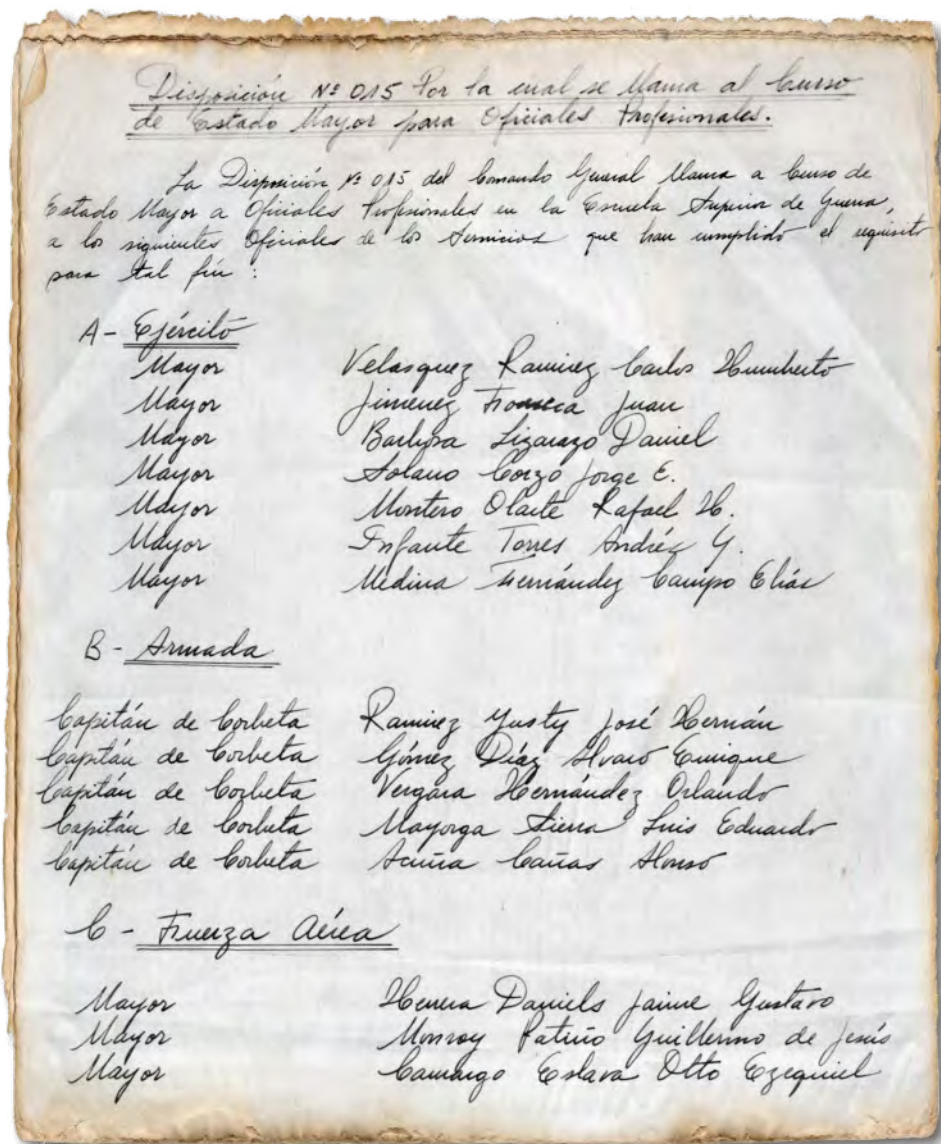 Disposición Nº 015 Por la cual se llama al Curso
de Estado Mayor para Oficiales Profesionales.
La Disposición Nº 015 del Comando General llama a Curso de
Estado Mayor a Oficiales Profesionales en la Escuela Superior de Guerra,
a los siguientes Oficiales de los Servicios que han cumplido el requisito
para tal fin :
A - Ejército
Mayor Velasquez Ramirez Carlos Humberto
Mayor Jimenez Fonseca Juan
Mayor Barbosa Lizarazo Daniel
Mayor Solano Corzo Jorge E.
Mayor Montero Olarte Rafael H.
Mayor Infante Torres Andrés G.
Mayor Medina Fernández Campo Elías
B - Armada
Capitán de Corbeta Ramirez Yusty José Hernán
Capitán de Corbeta Gómez Díaz Alvaro Enrique
Capitán de Corbeta Vergara Hernández Orlando
Capitán de Corbeta Mayorga Sierra Luis Eduardo
Capitán de Corbeta Acuña Cañas Alonso
C - Fuerza Aérea
Mayor Herrera Daniels Jaime Gustavo
Mayor Monroy Patiño Guillermo de Jesús
Mayor Camargo Eslava Otto Ezequiel